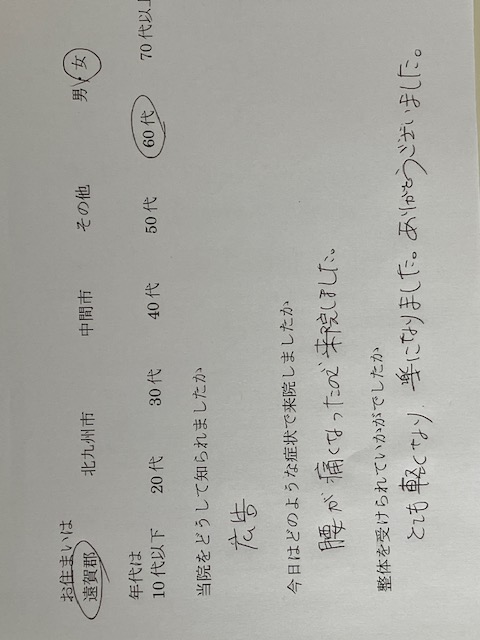 お住まいは
遠賀郡 北九州市 中間市 その他 男・女
年代は
10代以下 20代 30代 40代 50代 60代 70代以上
当院をどうして知られましたか
広告
今日はどのような症状で来院しましたか
腰が痛くなったので来院しました。
整体を受けられていかがでしたか
とても軽くなり、楽になりました。ありがとうございました。